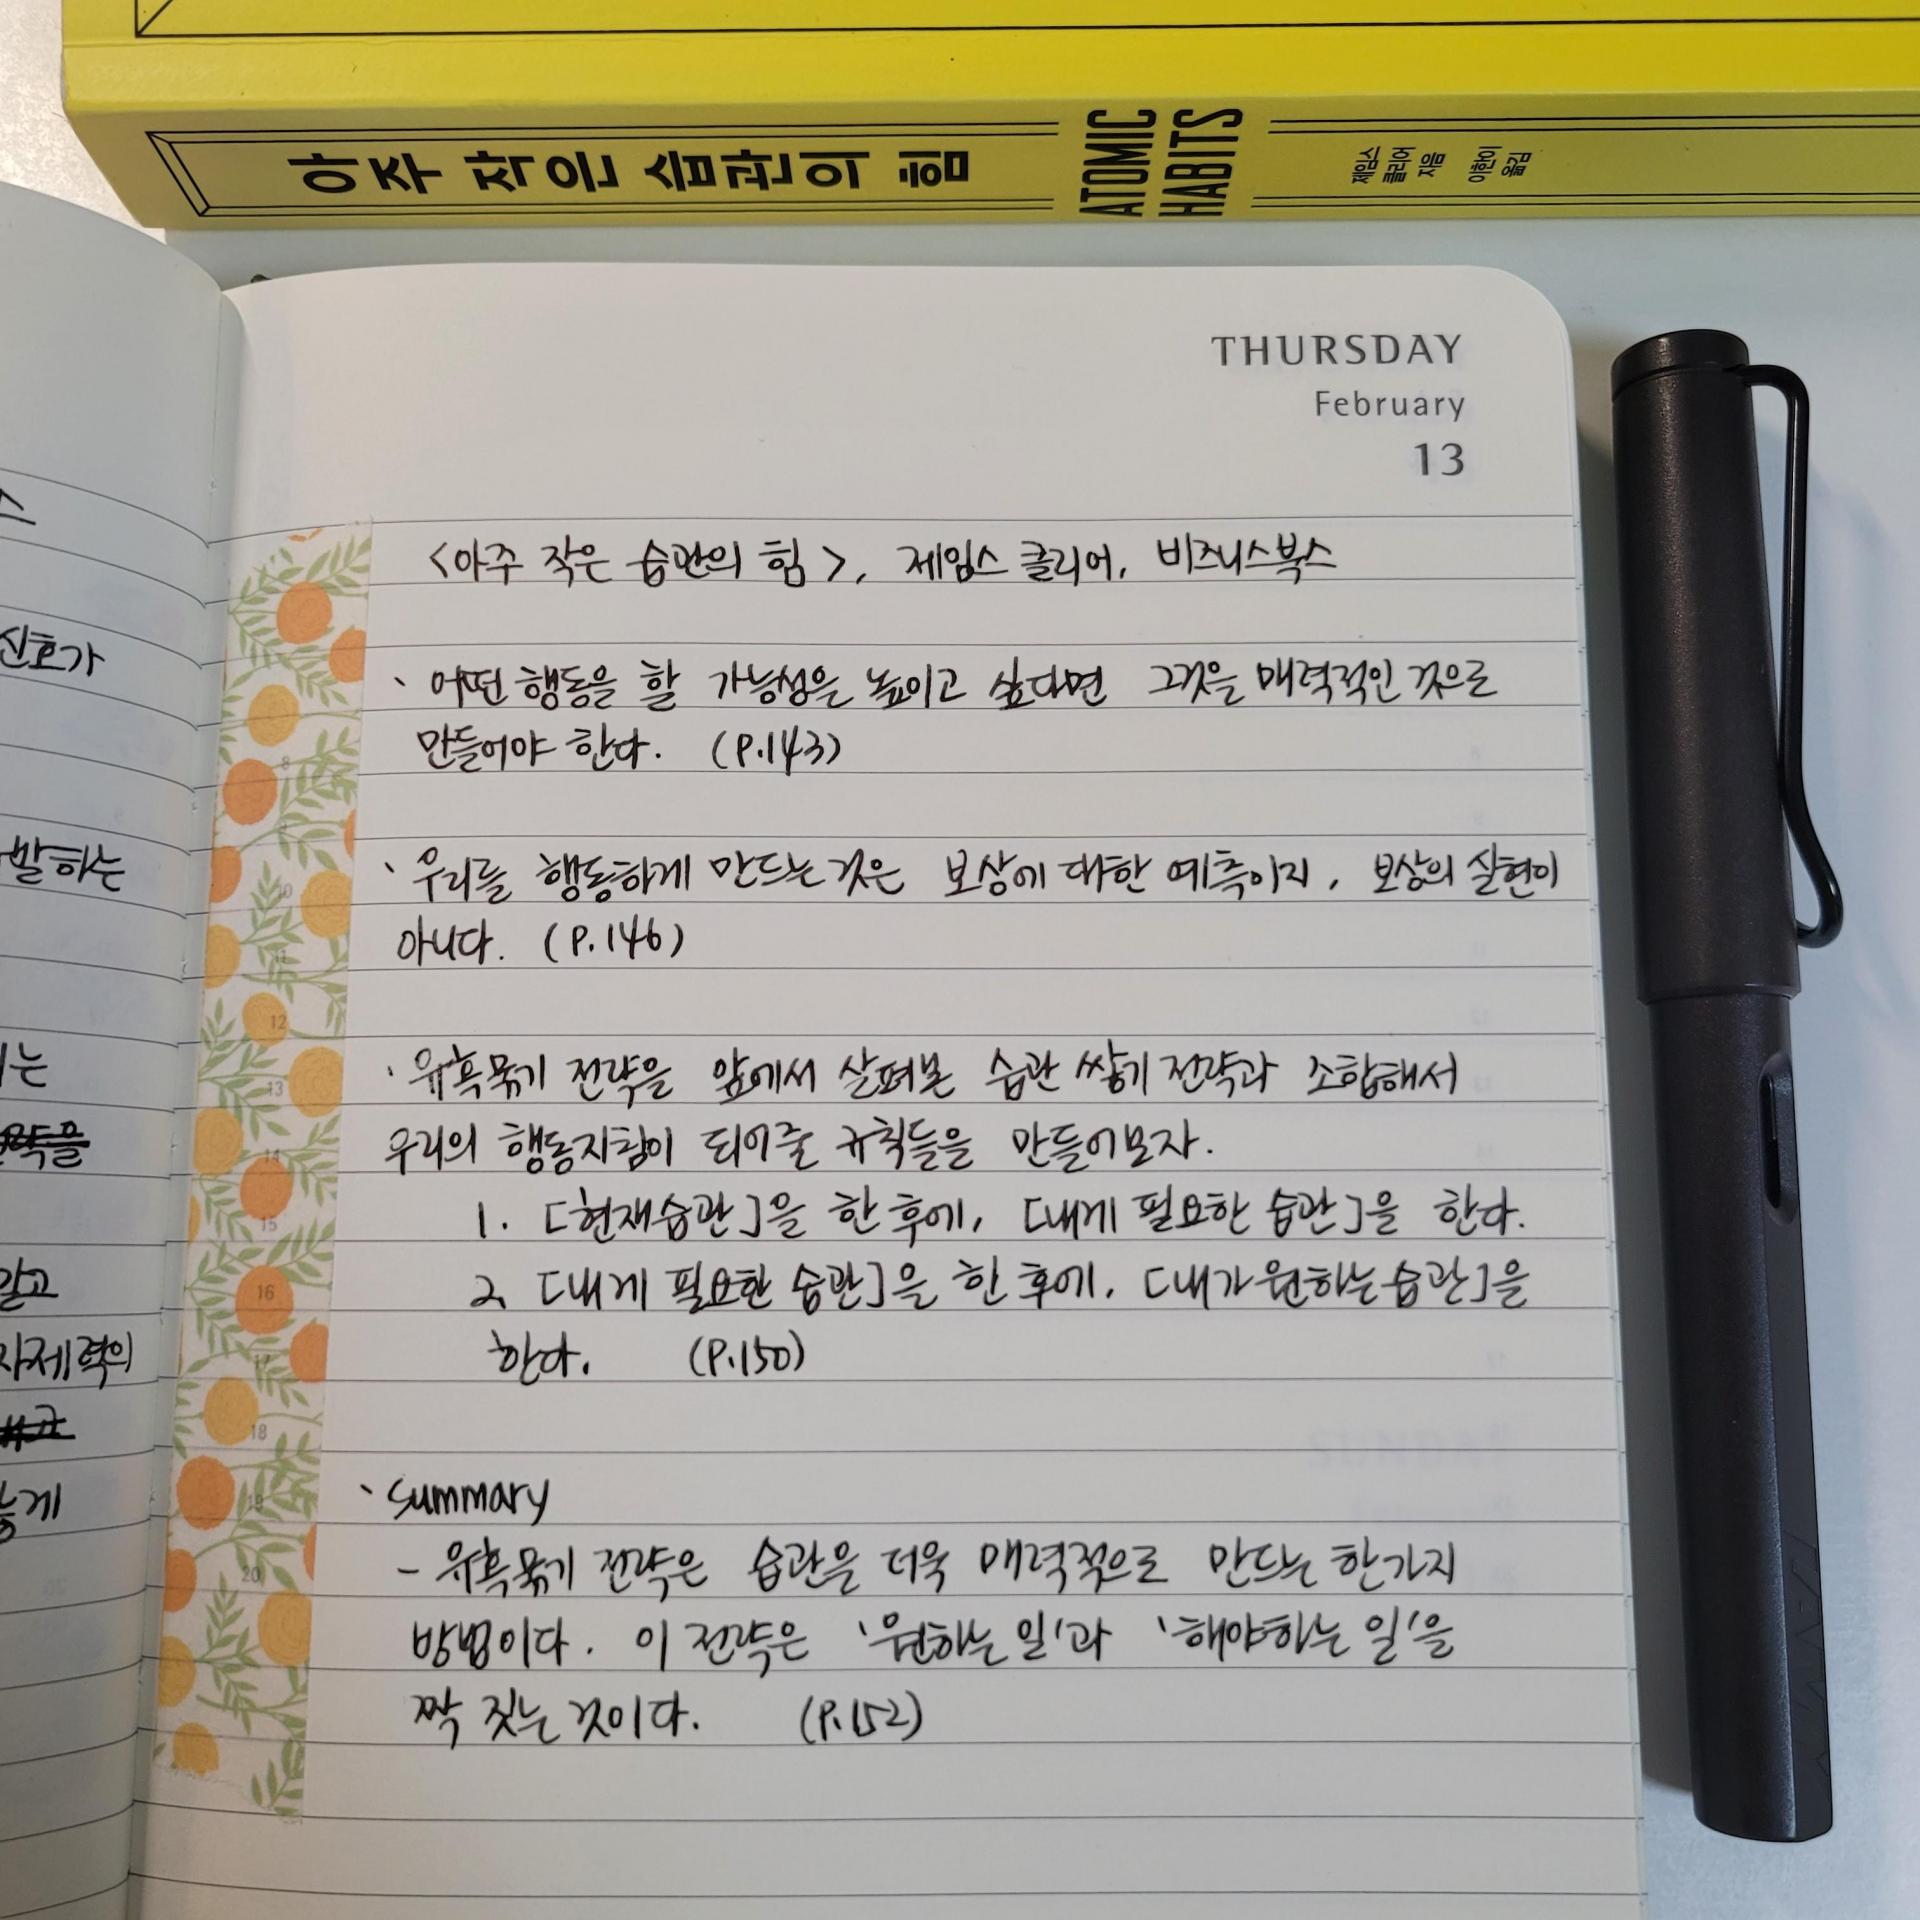 아주 작은 습관의 힘
ATOMIC
HABITS
제임스
클리어
지음
이한이
옮김
THURSDAY
February
13
<아주 작은 습관의 힘>, 제임스 클리어, 비즈니스북스
· 어떤 행동을 할 가능성을 높이고 싶다면 그것을 매력적인 것으로
만들어야 한다. (P.143)
· 우리를 행동하게 만드는 것은 보상에 대한 예측이지, 보상의 실현이
아니다. (P.146)
· 유혹묶기 전략을 앞에서 살펴본 습관 쌓기 전략과 조합해서
우리의 행동지침이 되어줄 규칙들을 만들어보자.
1. [현재습관]을 한 후에, [내게 필요한 습관]을 한다.
2. [내게 필요한 습관]을 한 후에, [내가 원하는 습관]을
한다. (P.150)
· summary
- 유혹묶기 전략은 습관을 더욱 매력적으로 만드는 한가지
방법이다. 이 전략은 '원하는 일'과 '해야하는 일'을
짝 짓는 것이다. (P.152)
신호가
발하는
는
자제력의
8
10
11
12
13
14
15
16
17
18
19
20
LAMY